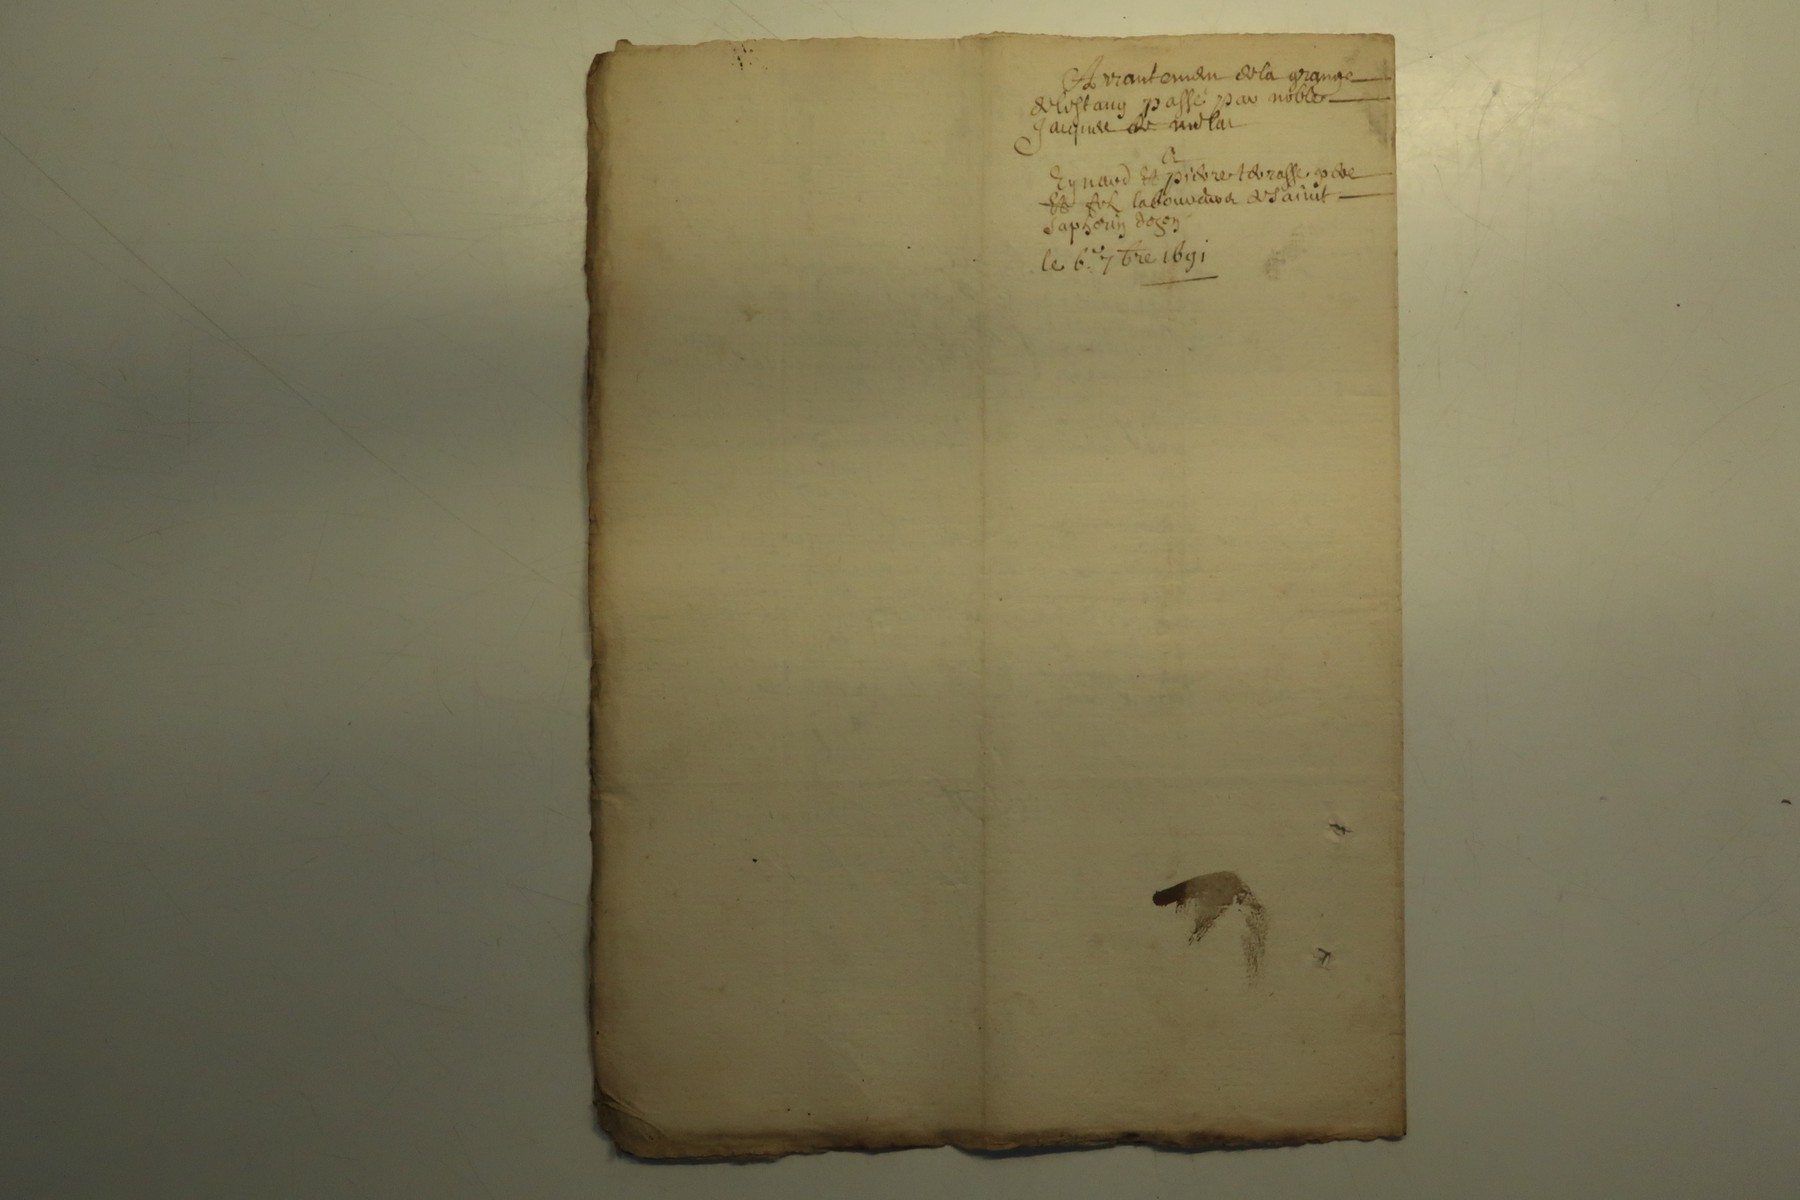 Arrantemen de la grange
de lestang passé par noble
Jacques de
a
Eynard et pierre terrasse pere
et fil laboureurs de Saint
Saphorin dozon
le 6e 7bre 1691